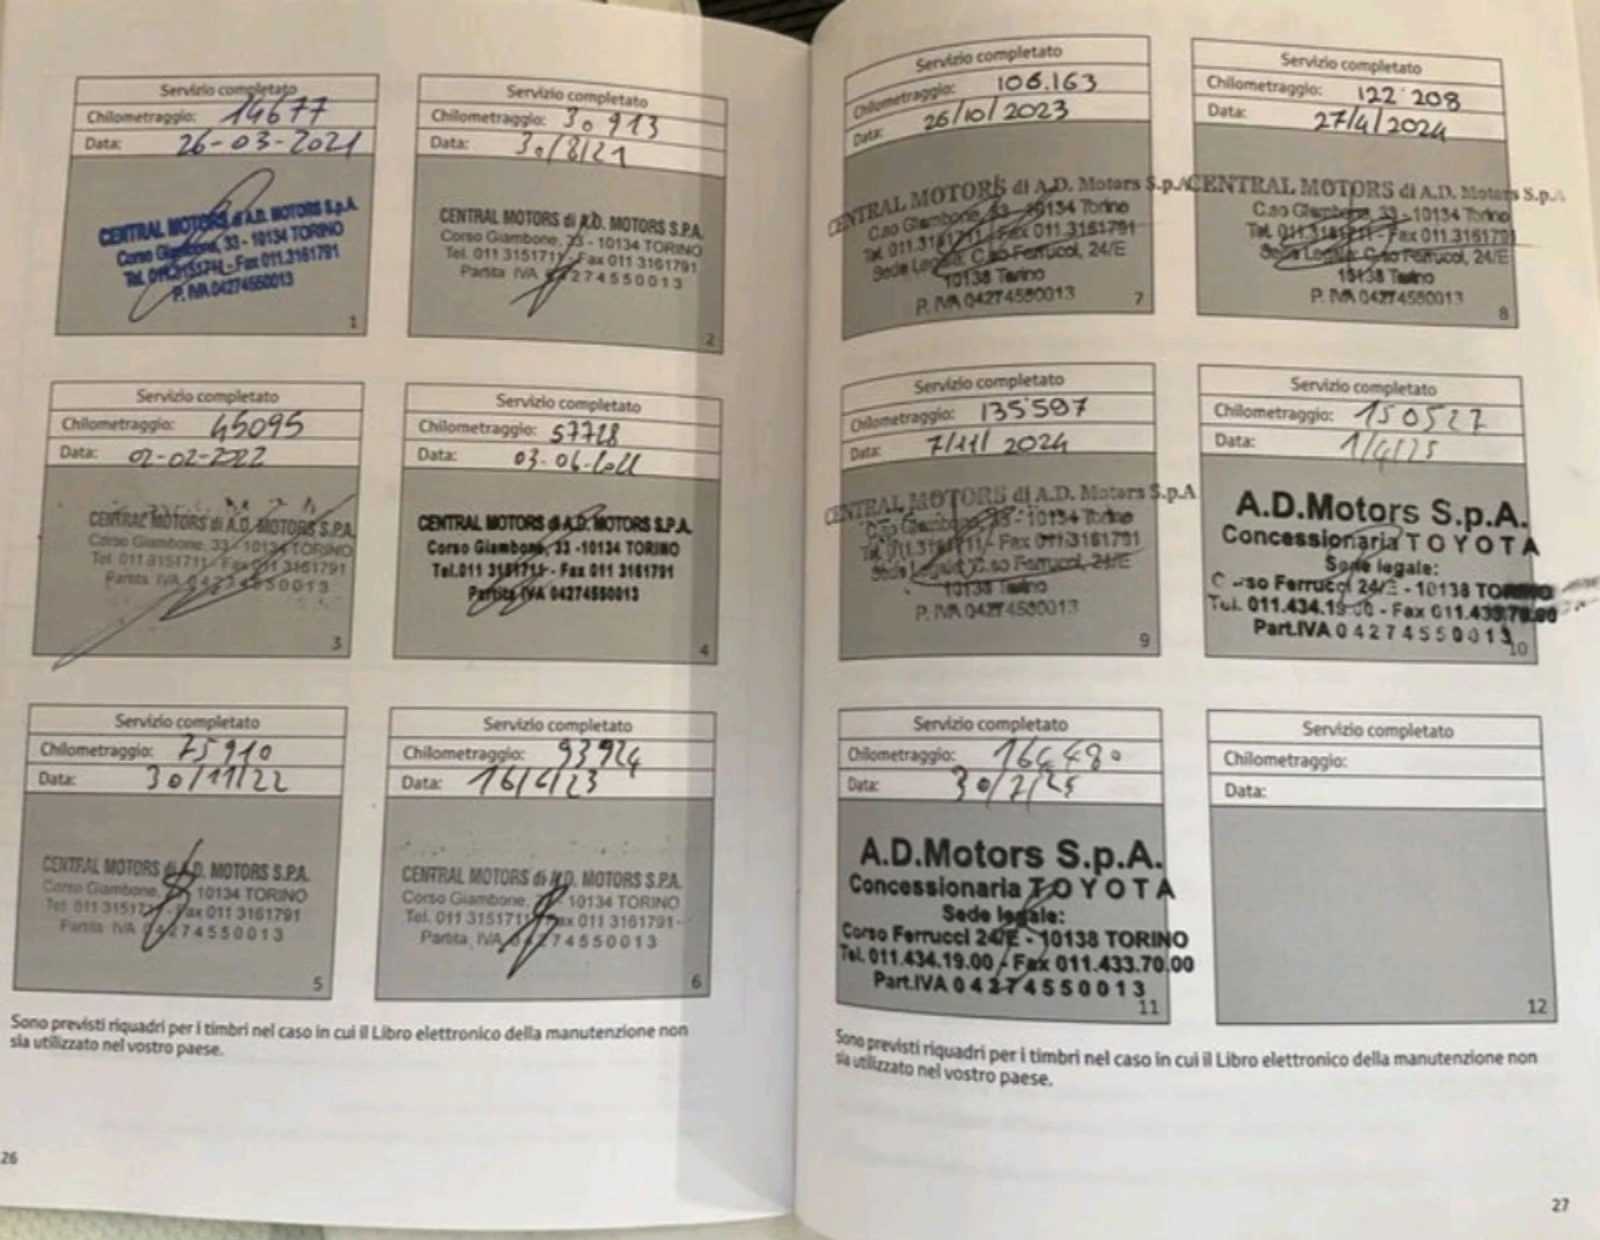 Servizio completato
Chilometraggio: 14677
Data: 26-03-2021
CENTRAL MOTORS di A.D. MOTORS S.p.A.
Corso Giambone, 33 - 10134 TORINO
Tel. 011 3151711 - Fax 011.3161791
P. IVA 04274550013
1
Servizio completato
Chilometraggio: 30913
Data: 30/8/21
CENTRAL MOTORS di A.D. MOTORS S.P.A.
Corso Giambone, 33 - 10134 TORINO
Tel. 011 3151711 - Fax 011 3161791
Partita IVA 04274550013
2
Servizio completato
Chilometraggio: 45095
Data: 02-02-2022
CENTRAL MOTORS di A.D. MOTORS S.P.A.
Corso Giambone, 33 - 10134 TORINO
Tel. 011 3151711 - Fax 011 3161791
Partita IVA 04274550013
3
Servizio completato
Chilometraggio: 57728
Data: 03-06-2022
CENTRAL MOTORS di A.D. MOTORS S.P.A.
Corso Giambone, 33 -10134 TORINO
Tel.011 3151711 - Fax 011 3161791
Partita IVA 04274550013
4
Servizio completato
Chilometraggio: 75910
Data: 30/11/22
CENTRAL MOTORS di A.D. MOTORS S.P.A.
Corso Giambone, 33 - 10134 TORINO
Tel. 011 3151711 - Fax 011 3161791
Partita IVA 04274550013
5
Servizio completato
Chilometraggio: 93924
Data: 16/6/23
CENTRAL MOTORS di A.D. MOTORS S.P.A.
Corso Giambone, 33 - 10134 TORINO
Tel. 011 3151711 - Fax 011 3161791
Partita IVA 04274550013
6
Sono previsti riquadri per i timbri nel caso in cui il Libro elettronico della manutenzione non
sia utilizzato nel vostro paese.
26
Servizio completato
Chilometraggio: 106.163
Data: 26/10/2023
CENTRAL MOTORS di A.D. Motors S.p.A
C.so Giambone, 33 - 10134 Torino
Tel. 011.3151711 - Fax 011.3161791
Sede Legale: C.so Ferrucci, 24/E
10138 Torino
P. IVA 04274550013
7
Servizio completato
Chilometraggio: 122 208
Data: 27/4/2024
CENTRAL MOTORS di A.D. Motors S.p.A
C.so Giambone, 33 - 10134 Torino
Tel. 011.3151711 - Fax 011.3161791
Sede Legale: C.so Ferrucci, 24/E
10138 Torino
P. IVA 04274550013
8
Servizio completato
Chilometraggio: 135597
Data: 7/11/2024
CENTRAL MOTORS di A.D. Motors S.p.A
C.so Giambone, 33 - 10134 Torino
Tel. 011.3151711 - Fax 011.3161791
Sede Legale: C.so Ferrucci, 24/E
10138 Torino
P. IVA 04274550013
9
Servizio completato
Chilometraggio: 150527
Data: 1/4/25
A.D.Motors S.p.A.
Concessionaria TOYOTA
Sede legale:
Corso Ferrucci 24/E - 10138 TORINO
Tel. 011.434.19.00 - Fax 011.433.70.00
Part.IVA 04274550013
10
Servizio completato
Chilometraggio: 164480
Data: 30/7/25
A.D.Motors S.p.A.
Concessionaria TOYOTA
Sede legale:
Corso Ferrucci 24/E - 10138 TORINO
Tel. 011.434.19.00 - Fax 011.433.70.00
Part.IVA 04274550013
11
Servizio completato
Chilometraggio:
Data:
12
Sono previsti riquadri per i timbri nel caso in cui il Libro elettronico della manutenzione non
sia utilizzato nel vostro paese.
27